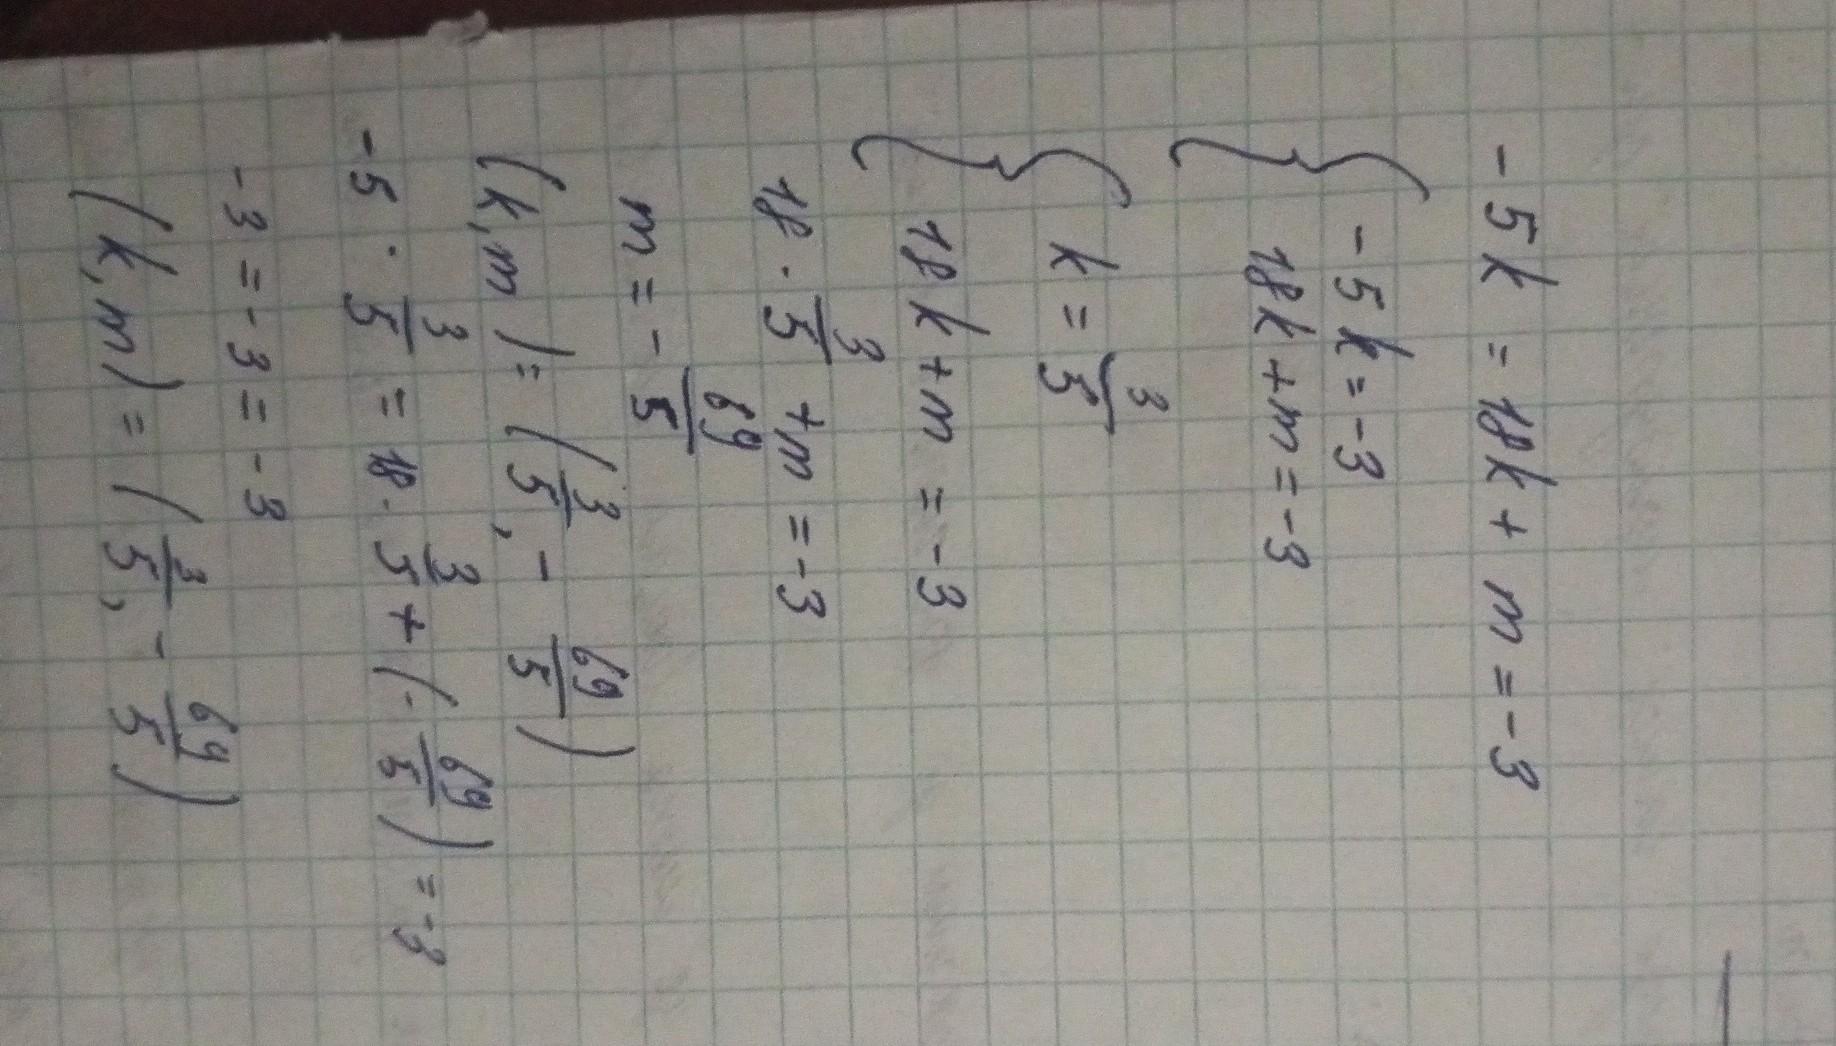 -5k = 18k + m = -3
{ -5k = -3
18k + m = -3
{ k = 3/5
18k + m = -3
18 · 3/5 + m = -3
m = - 69/5
(k, m) = (3/5, - 69/5)
-5 · 3/5 = 18 · 3/5 + (- 69/5) = -3
-3 = -3 = -3
(k, m) = (3/5, - 69/5)